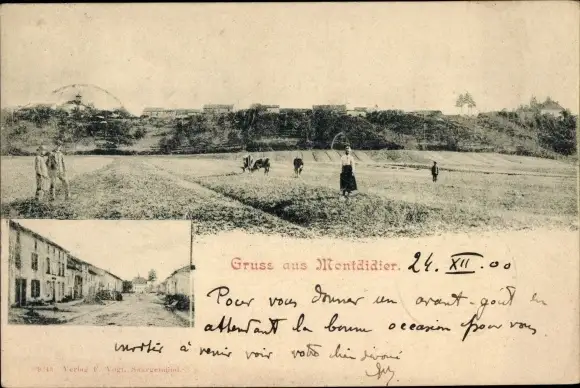 Gruss aus Montdidier. 24. XII. 00
Pour vous donner un avant-goût en
attendant la bonne occasion pour vous
inviter à venir voir votre bien dévoué
Verlag F. Vogt, Saargemünd.